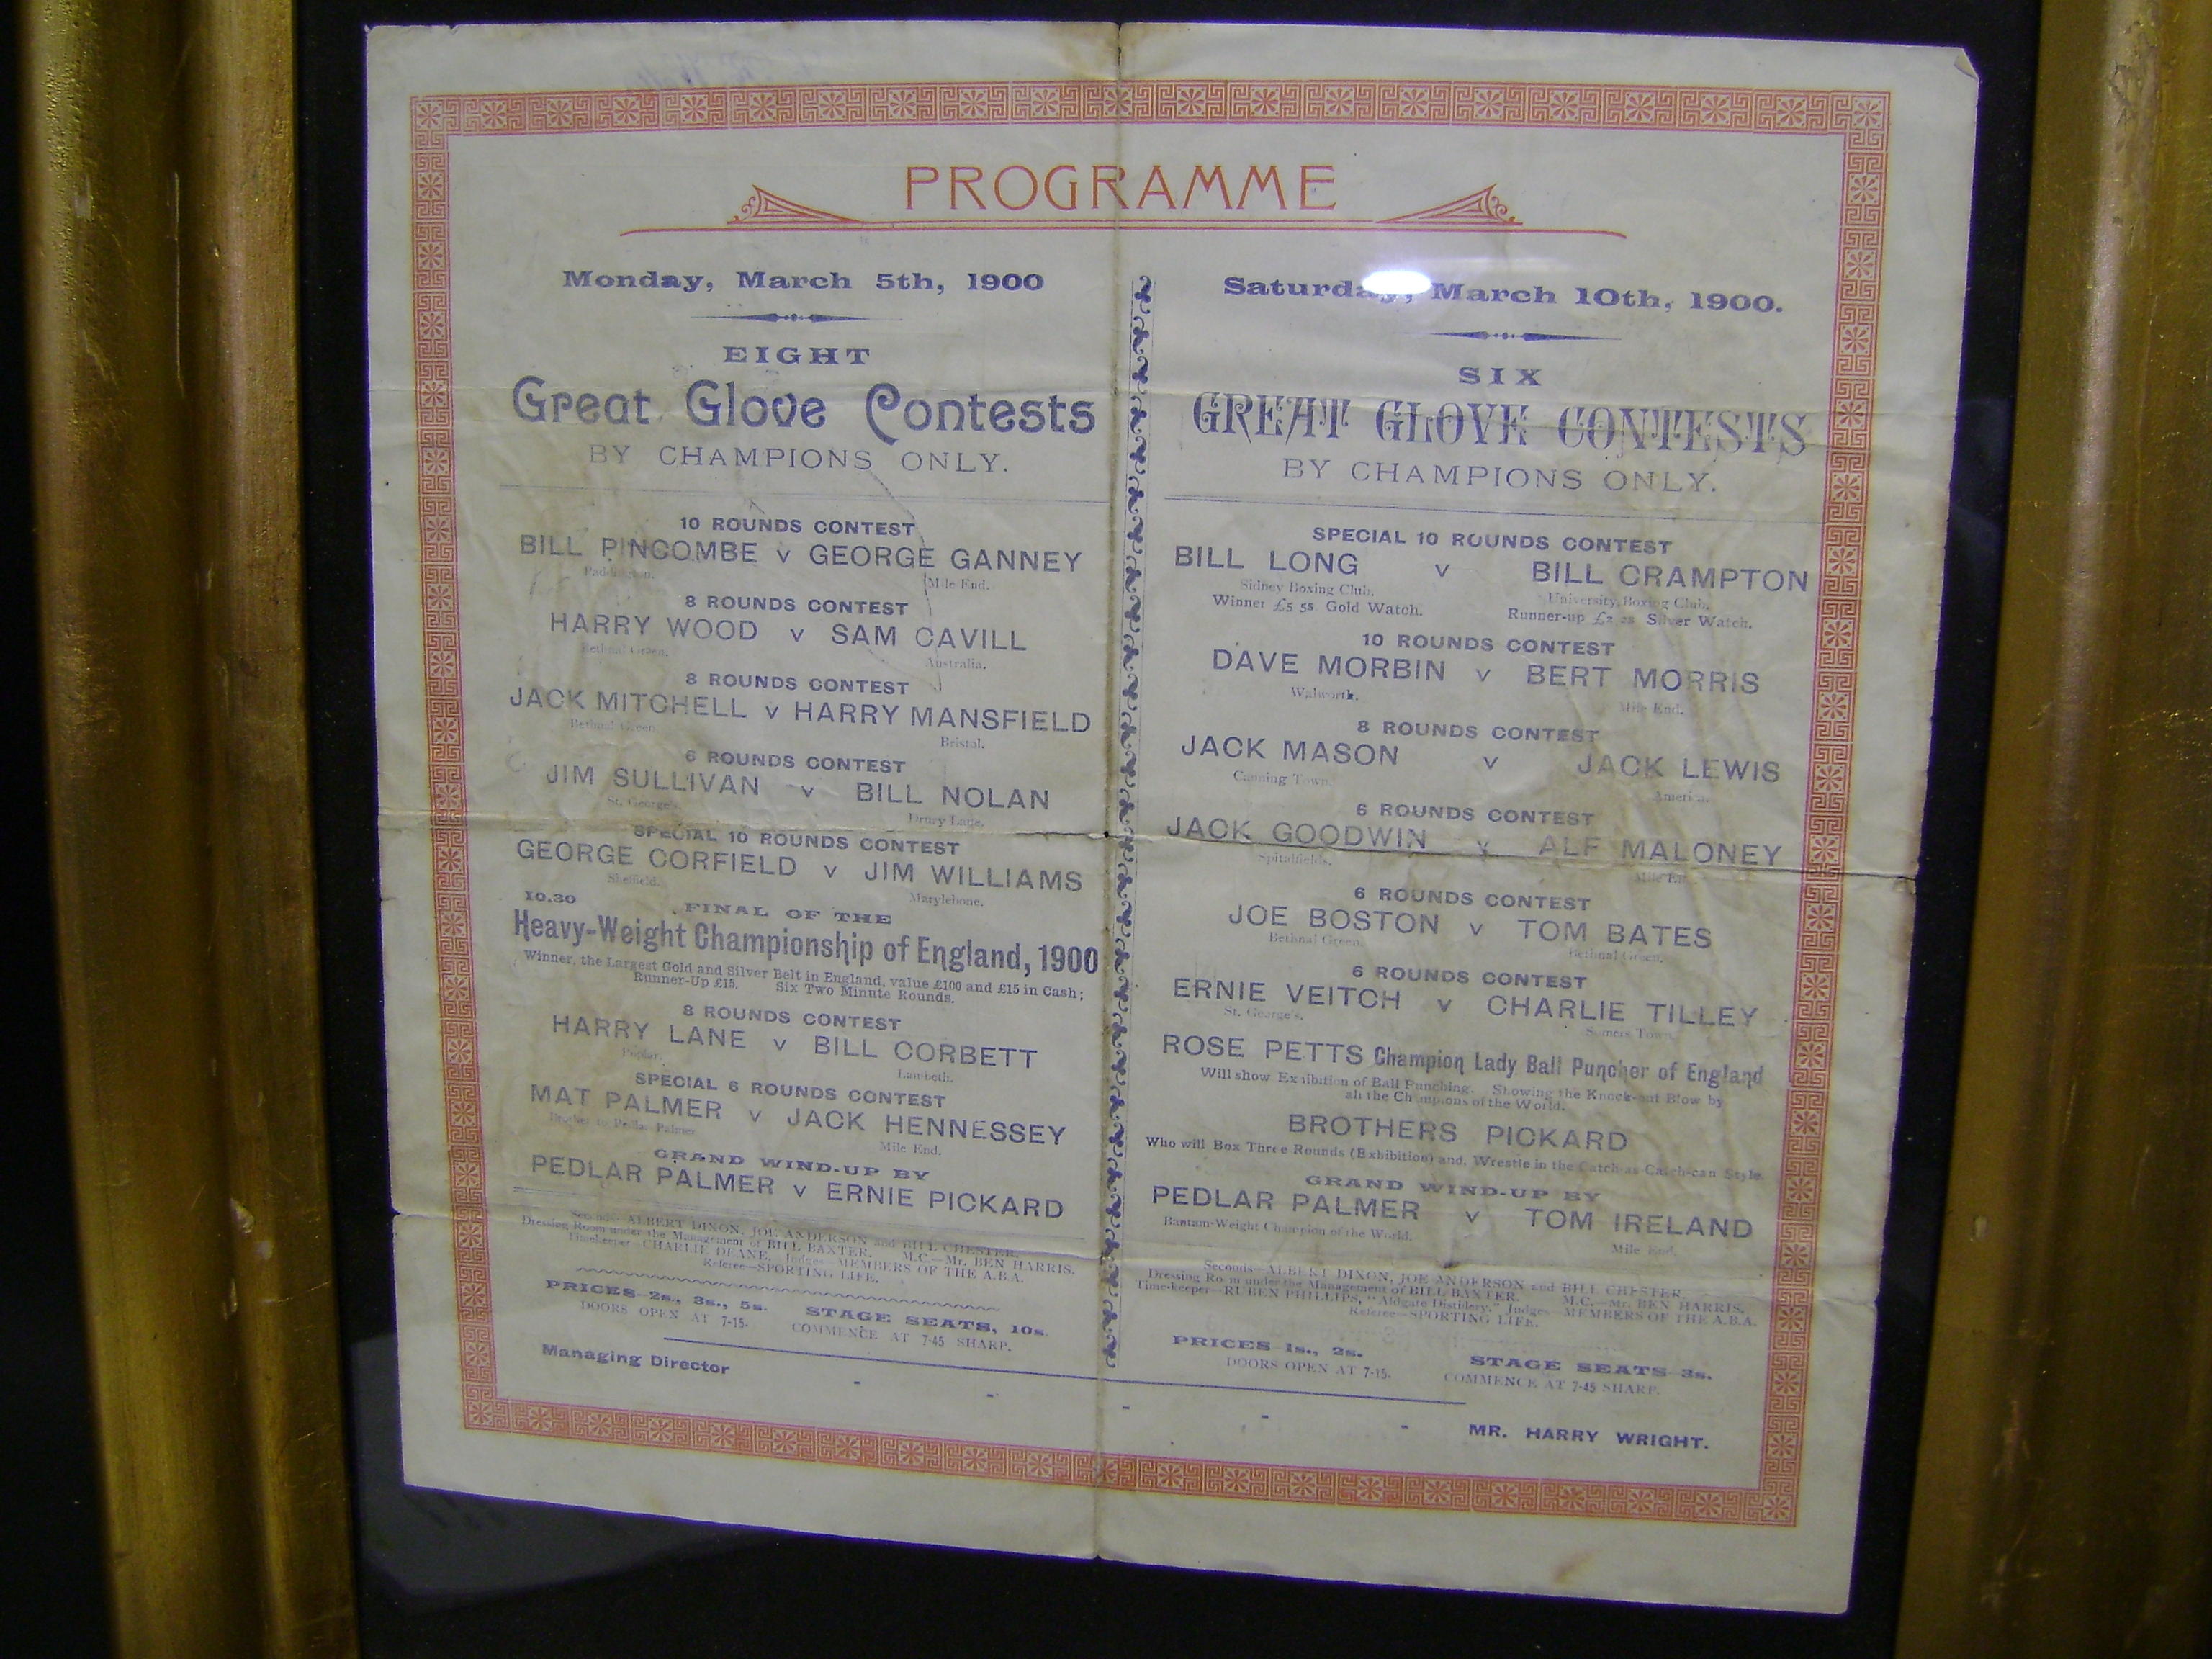 PROGRAMME
Monday, March 5th, 1900
EIGHT
Great Glove Contests
BY CHAMPIONS ONLY.
10 ROUNDS CONTEST
BILL PINCOMBE v GEORGE GANNEY
Paddington. Mile End.
8 ROUNDS CONTEST
HARRY WOOD v SAM CAVILL
Bethnal Green. Australia.
8 ROUNDS CONTEST
JACK MITCHELL v HARRY MANSFIELD
Bethnal Green. Bristol.
6 ROUNDS CONTEST
JIM SULLIVAN v BILL NOLAN
St. George's. Drury Lane.
SPECIAL 10 ROUNDS CONTEST
GEORGE CORFIELD v JIM WILLIAMS
Sheffield. Marylebone.
10.30 FINAL OF THE
Heavy-Weight Championship of England, 1900
Winner, the Largest Gold and Silver Belt in England, value £100 and £15 in Cash;
Runner-Up £15. Six Two Minute Rounds.
8 ROUNDS CONTEST
HARRY LANE v BILL CORBETT
Poplar. Lambeth.
SPECIAL 6 ROUNDS CONTEST
MAT PALMER v JACK HENNESSEY
Brother to Pedlar Palmer Mile End.
GRAND WIND-UP BY
PEDLAR PALMER v ERNIE PICKARD
Seconds—ALBERT DIXON, JOE ANDERSON and BILL CHESTER.
Dressing Room under the Management of BILL BAXTER. M.C.—Mr. BEN HARRIS.
Timekeeper—CHARLIE DEANE. Judges—MEMBERS OF THE A.B.A.
Referee—SPORTING LIFE.
PRICES—2s., 3s., 5s. STAGE SEATS, 10s.
DOORS OPEN AT 7-15. COMMENCE AT 7-45 SHARP.
Saturday, March 10th, 1900.
SIX
GREAT GLOVE CONTESTS
BY CHAMPIONS ONLY.
SPECIAL 10 ROUNDS CONTEST
BILL LONG v BILL CRAMPTON
Sidney Boxing Club. University Boxing Club.
Winner £5 5s Gold Watch. Runner-up Silver Watch.
10 ROUNDS CONTEST
DAVE MORBIN v BERT MORRIS
Walworth. Mile End.
8 ROUNDS CONTEST
JACK MASON v JACK LEWIS
Canning Town. America.
6 ROUNDS CONTEST
JACK GOODWIN v ALF MALONEY
Spitalfields. Mile End.
6 ROUNDS CONTEST
JOE BOSTON v TOM BATES
Bethnal Green. Bethnal Green.
6 ROUNDS CONTEST
ERNIE VEITCH v CHARLIE TILLEY
St. George's. Somers Town.
ROSE PETTS Champion Lady Ball Puncher of England
Will show Exhibition of Ball Punching. Showing the Knock-out Blow by
all the Champions of the World.
BROTHERS PICKARD
Who will Box Three Rounds (Exhibition) and, Wrestle in the Catch-as-Catch-can Style.
GRAND WIND-UP BY
PEDLAR PALMER v TOM IRELAND
Bantam-Weight Champion of the World. Mile End.
Seconds—ALBERT DIXON, JOE ANDERSON and BILL CHESTER.
Dressing Room under the Management of BILL BAXTER. M.C.—Mr. BEN HARRIS.
Time-keeper—RUBEN PHILLIPS, "Aldgate Distillery." Judges—MEMBERS OF THE A.B.A.
Referee—SPORTING LIFE.
PRICES 1s., 2s. STAGE SEATS 3s.
DOORS OPEN AT 7-15. COMMENCE AT 7-45 SHARP.
Managing Director - - - - - MR. HARRY WRIGHT.